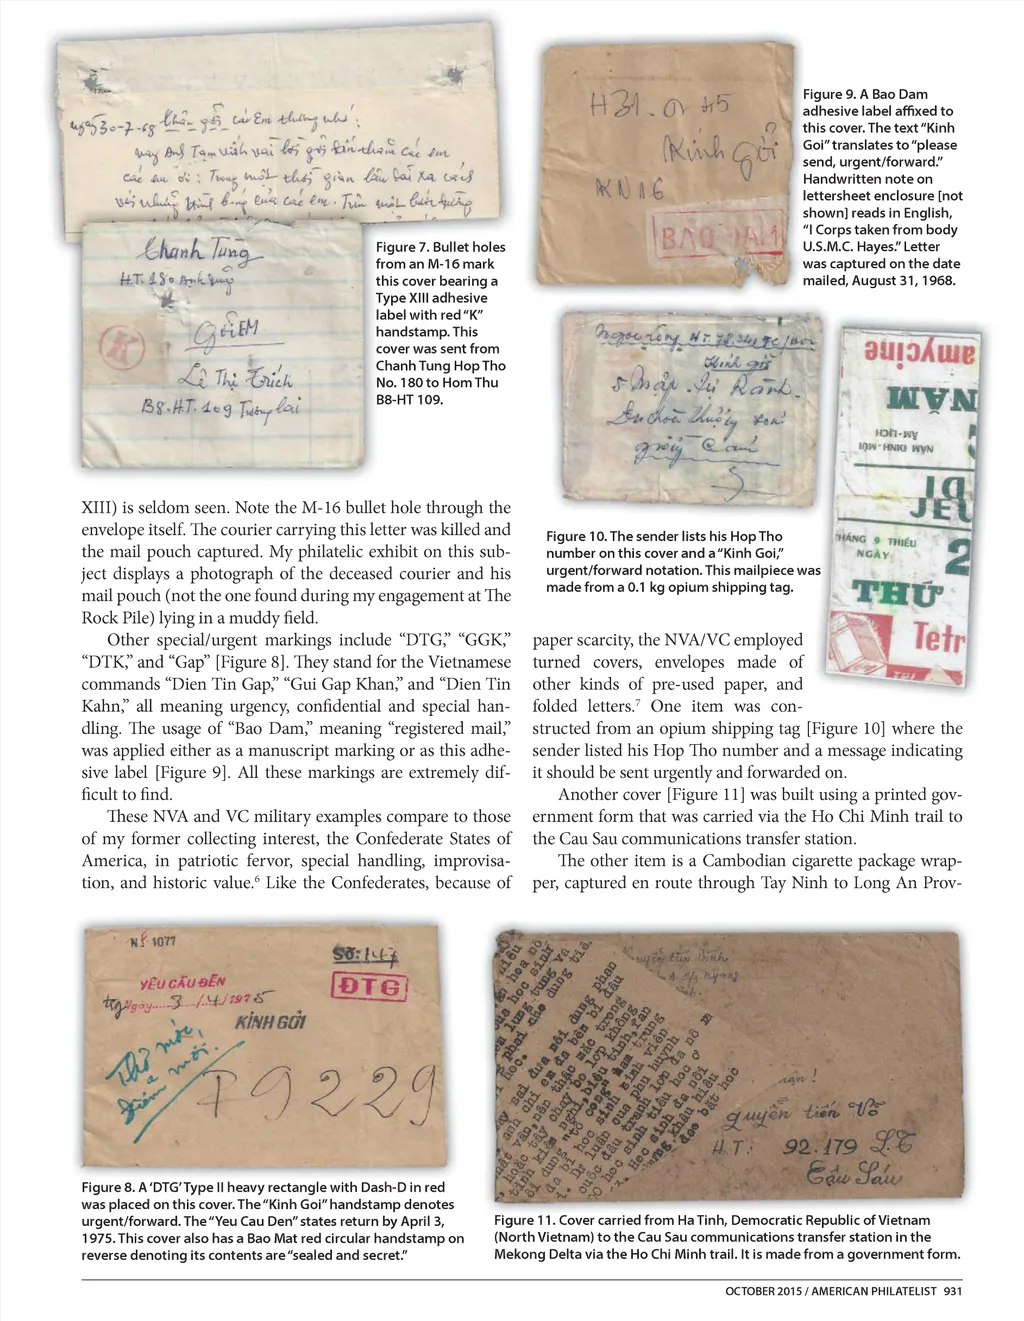 ngày 30-7-68 thân gởi các Em thương nhớ:
H31 or H5
Kính gởi
KN16
BẢO ĐẢM
Figure 9. A Bao Dam
adhesive label affixed to
this cover. The text “Kinh
Goi” translates to “please
send, urgent/forward.”
Handwritten note on
lettersheet enclosure [not
shown] reads in English,
“I Corps taken from body
U.S.M.C. Hayes.” Letter
was captured on the date
mailed, August 31, 1968.
Chanh Tùng
H.T. 180
K
Gởi EM
Lê Thị Trích
B8.HT.109 Tương lai
Figure 7. Bullet holes
from an M-16 mark
this cover bearing a
Type XIII adhesive
label with red “K”
handstamp. This
cover was sent from
Chanh Tung Hop Tho
No. 180 to Hom Thu
B8-HT 109.
Kính gởi
amycine
NĂM
ÂM-LỊCH
NĂM ĐINH-MÙI
JEU
THÁNG 9 THIẾU
NGÀY
2
THỨ
Tetr
Figure 10. The sender lists his Hop Tho
number on this cover and a “Kinh Goi,”
urgent/forward notation. This mailpiece was
made from a 0.1 kg opium shipping tag.
XIII) is seldom seen. Note the M-16 bullet hole through the
envelope itself. The courier carrying this letter was killed and
the mail pouch captured. My philatelic exhibit on this sub-
ject displays a photograph of the deceased courier and his
mail pouch (not the one found during my engagement at The
Rock Pile) lying in a muddy field.
Other special/urgent markings include “DTG,” “GGK,”
“DTK,” and “Gap” [Figure 8]. They stand for the Vietnamese
commands “Dien Tin Gap,” “Gui Gap Khan,” and “Dien Tin
Kahn,” all meaning urgency, confidential and special han-
dling. The usage of “Bao Dam,” meaning “registered mail,”
was applied either as a manuscript marking or as this adhe-
sive label [Figure 9]. All these markings are extremely dif-
ficult to find.
These NVA and VC military examples compare to those
of my former collecting interest, the Confederate States of
America, in patriotic fervor, special handling, improvisa-
tion, and historic value.⁶ Like the Confederates, because of
paper scarcity, the NVA/VC employed
turned covers, envelopes made of
other kinds of pre-used paper, and
folded letters.⁷ One item was con-
structed from an opium shipping tag [Figure 10] where the
sender listed his Hop Tho number and a message indicating
it should be sent urgently and forwarded on.
Another cover [Figure 11] was built using a printed gov-
ernment form that was carried via the Ho Chi Minh trail to
the Cau Sau communications transfer station.
The other item is a Cambodian cigarette package wrap-
per, captured en route through Tay Ninh to Long An Prov-
1077
Số: 147
YÊU CẦU ĐẾN
ĐTG
Ngày 3/4/1975
KÍNH GỞI
79229
Figure 8. A ‘DTG’ Type II heavy rectangle with Dash-D in red
was placed on this cover. The “Kinh Goi” handstamp denotes
urgent/forward. The “Yeu Cau Den” states return by April 3,
1975. This cover also has a Bao Mat red circular handstamp on
reverse denoting its contents are “sealed and secret.”
nguyễn tiến Võ
H.T: 92.179 L.T
Cầu Sáu
Figure 11. Cover carried from Ha Tinh, Democratic Republic of Vietnam
(North Vietnam) to the Cau Sau communications transfer station in the
Mekong Delta via the Ho Chi Minh trail. It is made from a government form.
OCTOBER 2015 / AMERICAN PHILATELIST 931